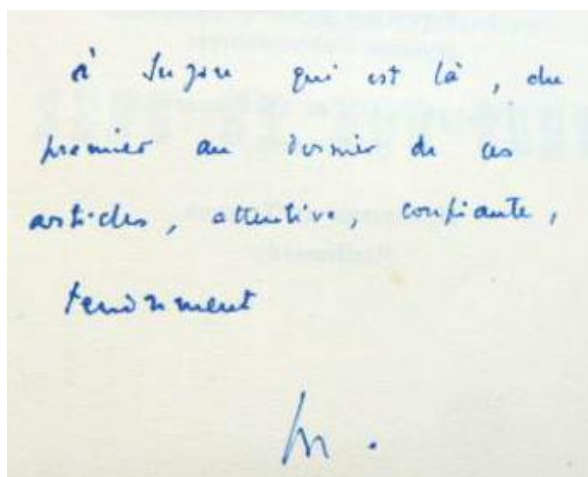 à Suzanne qui est là, du
premier au dernier de ces
articles, attentive, confiante,
tendrement
M.